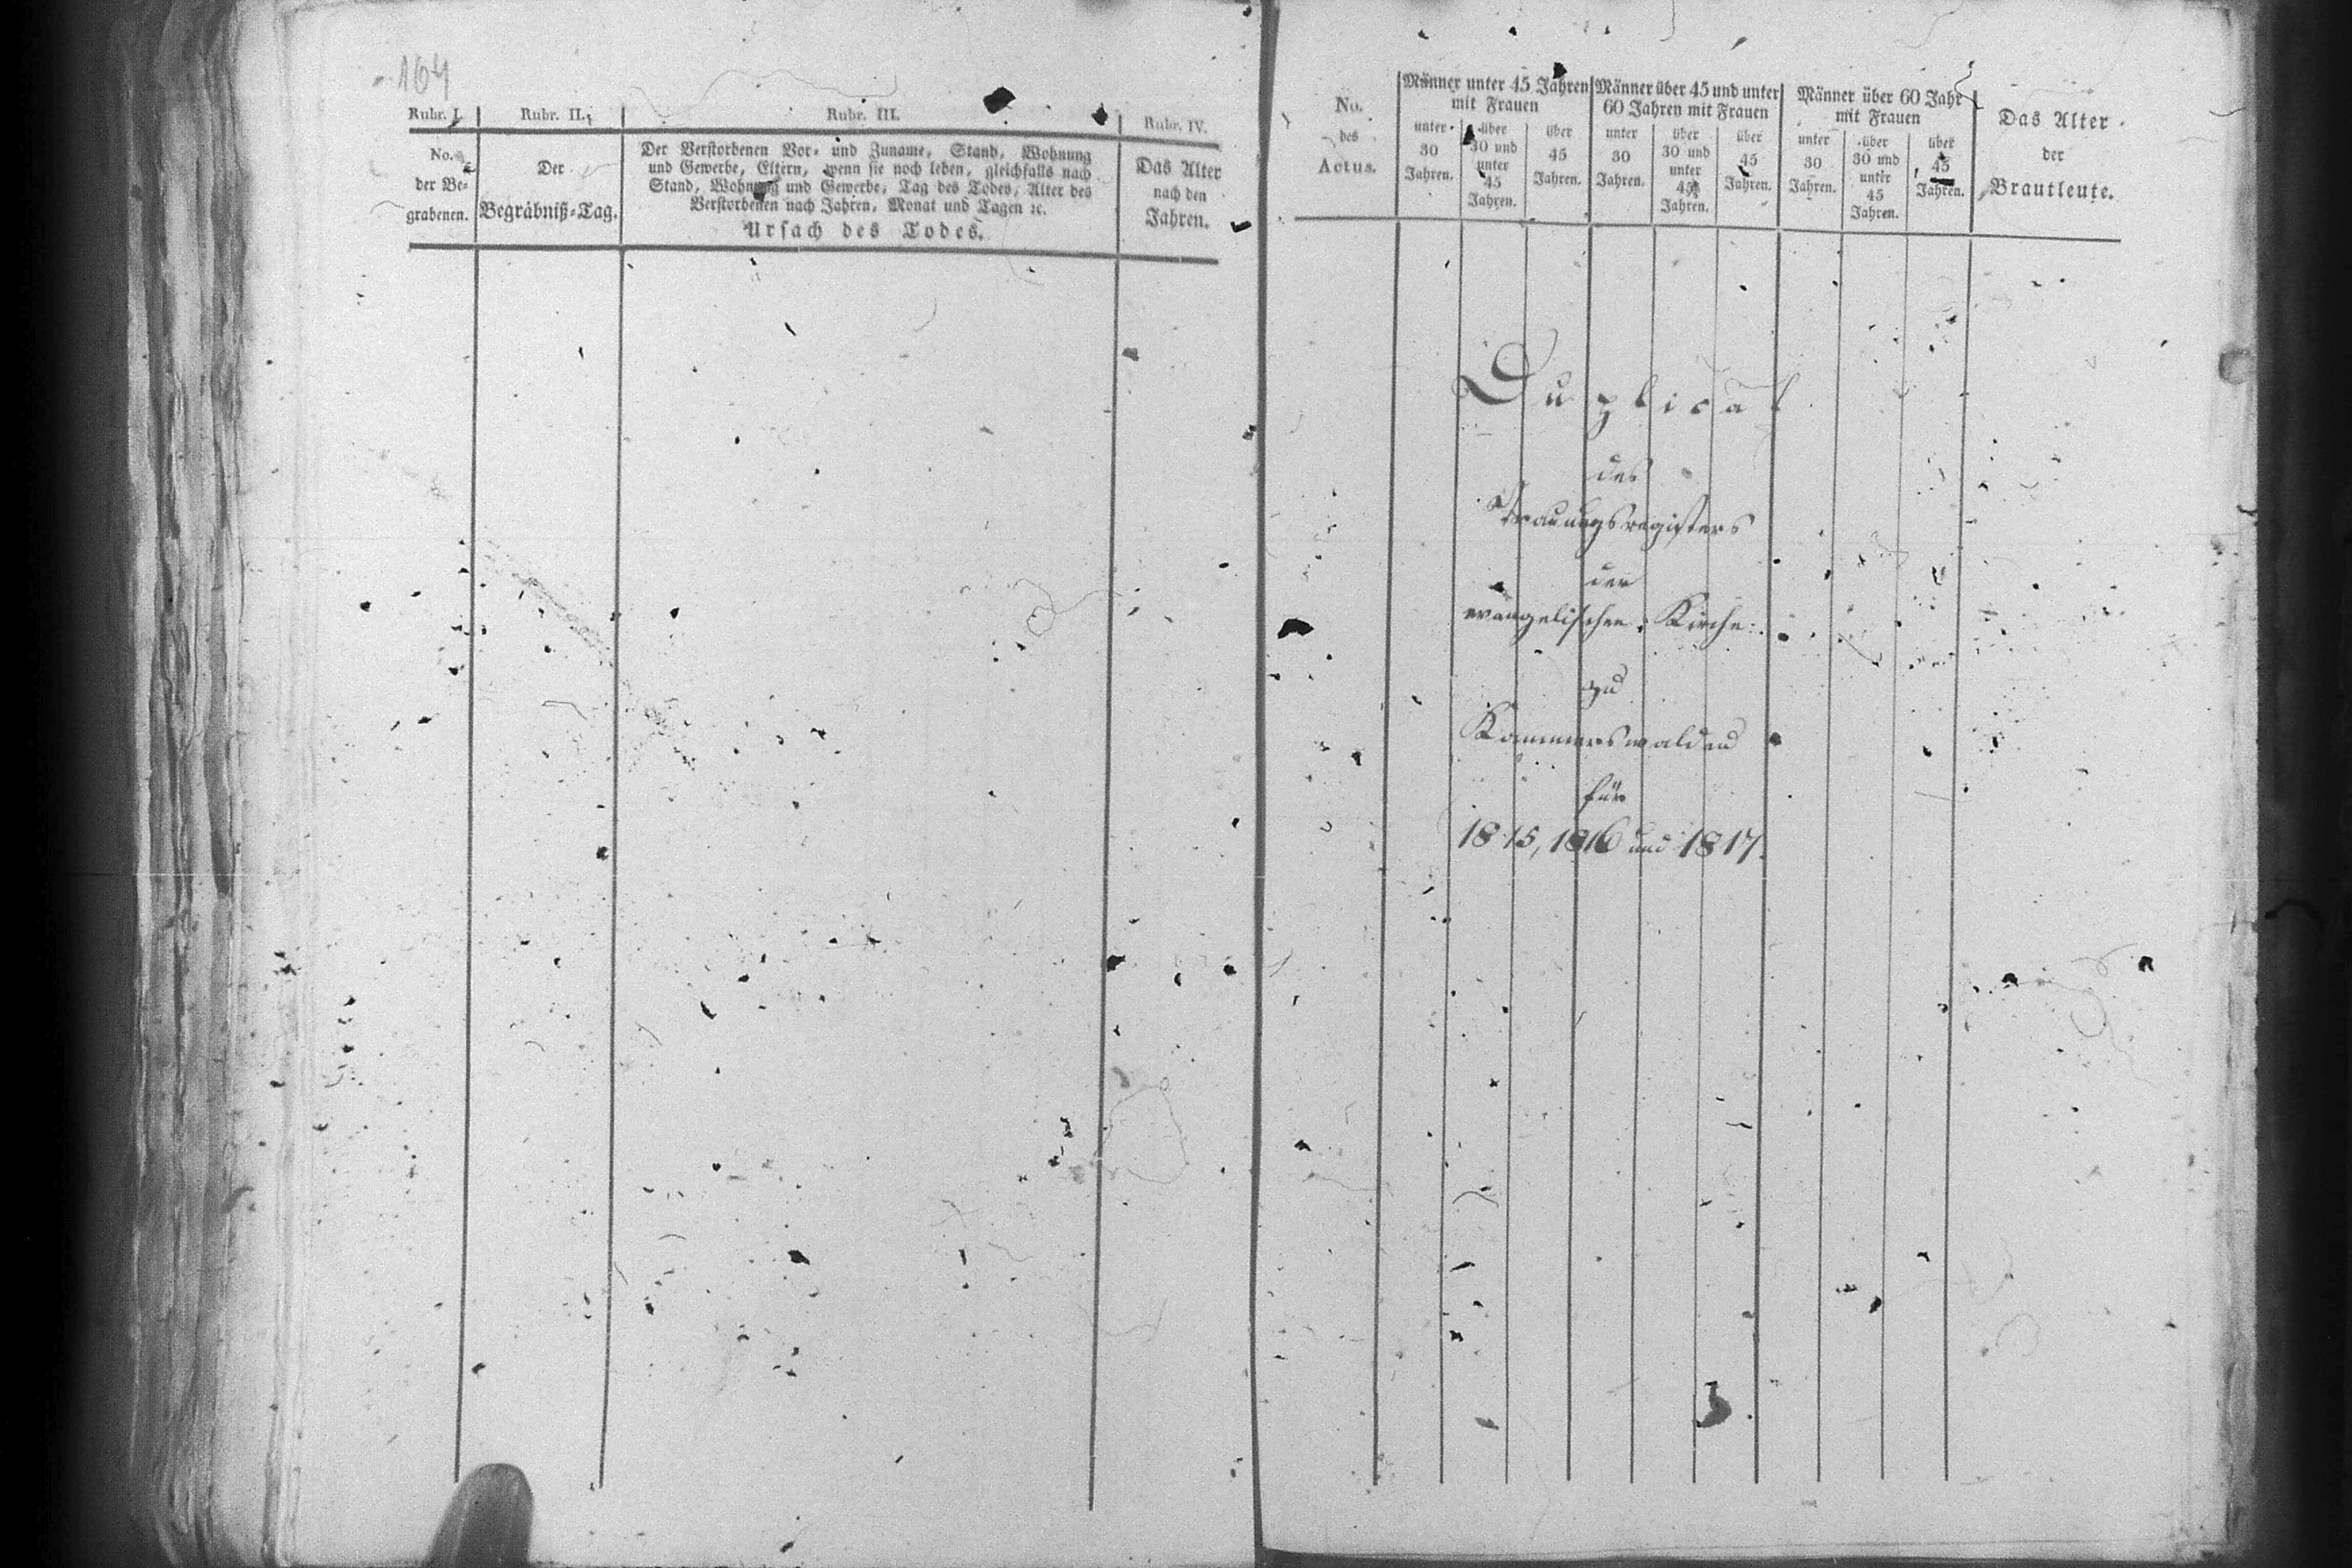 164
Rubr. I.
No.
der Be-
grabenen.
Rubr. II.
Der
Begräbniß-Tag.
Rubr. III.
Der Verstorbenen Vor- und Zuname, Stand, Wohnung
und Gewerbe, Eltern, wenn sie noch leben, gleichfalls nach
Stand, Wohnung und Gewerbe, Tag des Todes, Alter des
Verstorbenen nach Jahren, Monat und Tagen ꝛc.
Ursach des Todes.
Rubr. IV.
Das Alter
nach den
Jahren.
No.
des
Actus.
Männer unter 45 Jahren
mit Frauen
unter
30
Jahren.
über
30 und
unter
45
Jahren.
über
45
Jahren.
Männer über 45 und unter
60 Jahren mit Frauen
unter
30
Jahren.
über
30 und
unter
45
Jahren.
über
45
Jahren.
Männer über 60 Jahr
mit Frauen
unter
30
Jahren.
über
30 und
unter
45
Jahren.
über
45
Jahren.
Das Alter
der
Brautleute.
Duplicat
des
Trauungsregisters
der
evangelischen Kirche
zu
Kammerswaldau
für
1815, 1816 und 1817.